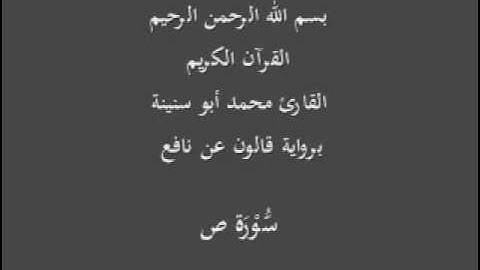 بسم الله الرحمن الرحيم
القرآن الكريم
القارئ محمد أبو سنينة
برواية قالون عن نافع
سُّوْرَة ص